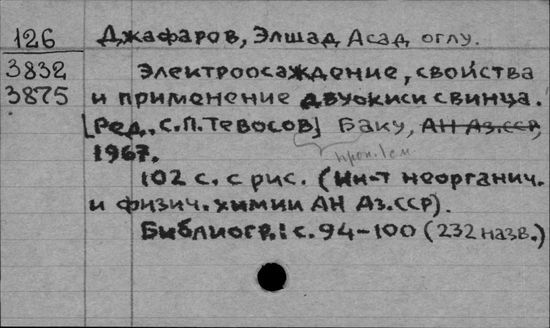 126
3832
3875
Джафаров, Элшад Асад оглу.
Электроосаждение, свойства
и применение двуокиси свинца.
[Ред. С.П. Тевосов] Баку, АН Аз.ССР,
1967.
102 с. с рис. (Ин-т неорганич.
и физич. химии АН Аз.ССР).
Библиогр.: с. 94-100 (232 назв.)